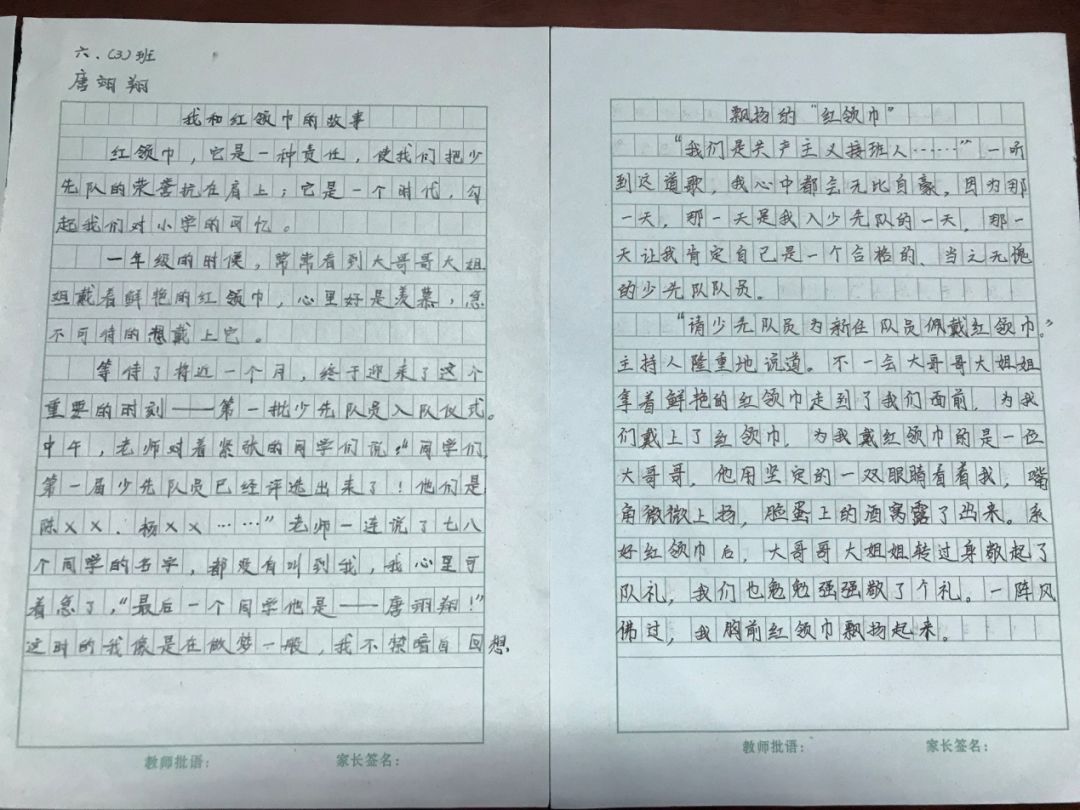 六.(3)班
唐翊翔
我和红领巾的故事
红领巾，它是一种责任，使我们把少
先队的荣誉抗在肩上；它是一个时代，勾
起我们对小学的回忆。
一年级的时候，常常看到大哥哥大姐
姐戴着鲜艳的红领巾，心里好是羡慕，急
不可待的想戴上它。
等待了将近一个月，终于迎来了这个
重要的时刻——第一批少先队员入队仪式。
中午，老师对着紧张的同学们说：“同学们，
第一届少先队员已经评选出来了！他们是
陈××．杨××……”老师一连说了七八
个同学的名字，都没有叫到我，我心里可
着急了，“最后一个同学他是——唐翊翔！”
这时的我像是在做梦一般，我不禁暗自回想
教师批语：
家长签名：
飘扬的“红领巾”
“我们是共产主义接班人……”一听
到这道歌，我心中都会无比自豪，因为那
一天，那一天是我入少先队的一天，那一
天让我肯定自己是一个合格的、当之无愧
的少先队队员。
“请少先队员为新任队员佩戴红领巾。”
主持人隆重地说道。不一会大哥哥大姐姐
拿着鲜艳的红领巾走到了我们面前，为我
们戴上了红领巾，为我戴红领巾的是一位
大哥哥，他用坚定的一双眼睛看着我，嘴
角微微上扬，脸蛋上的酒窝露了出来。系
好红领巾后，大哥哥大姐姐转过身敬起了
队礼，我们也勉勉强强敬了个礼。一阵风
佛过，我胸前红领巾飘扬起来。
教师批语：
家长签名：